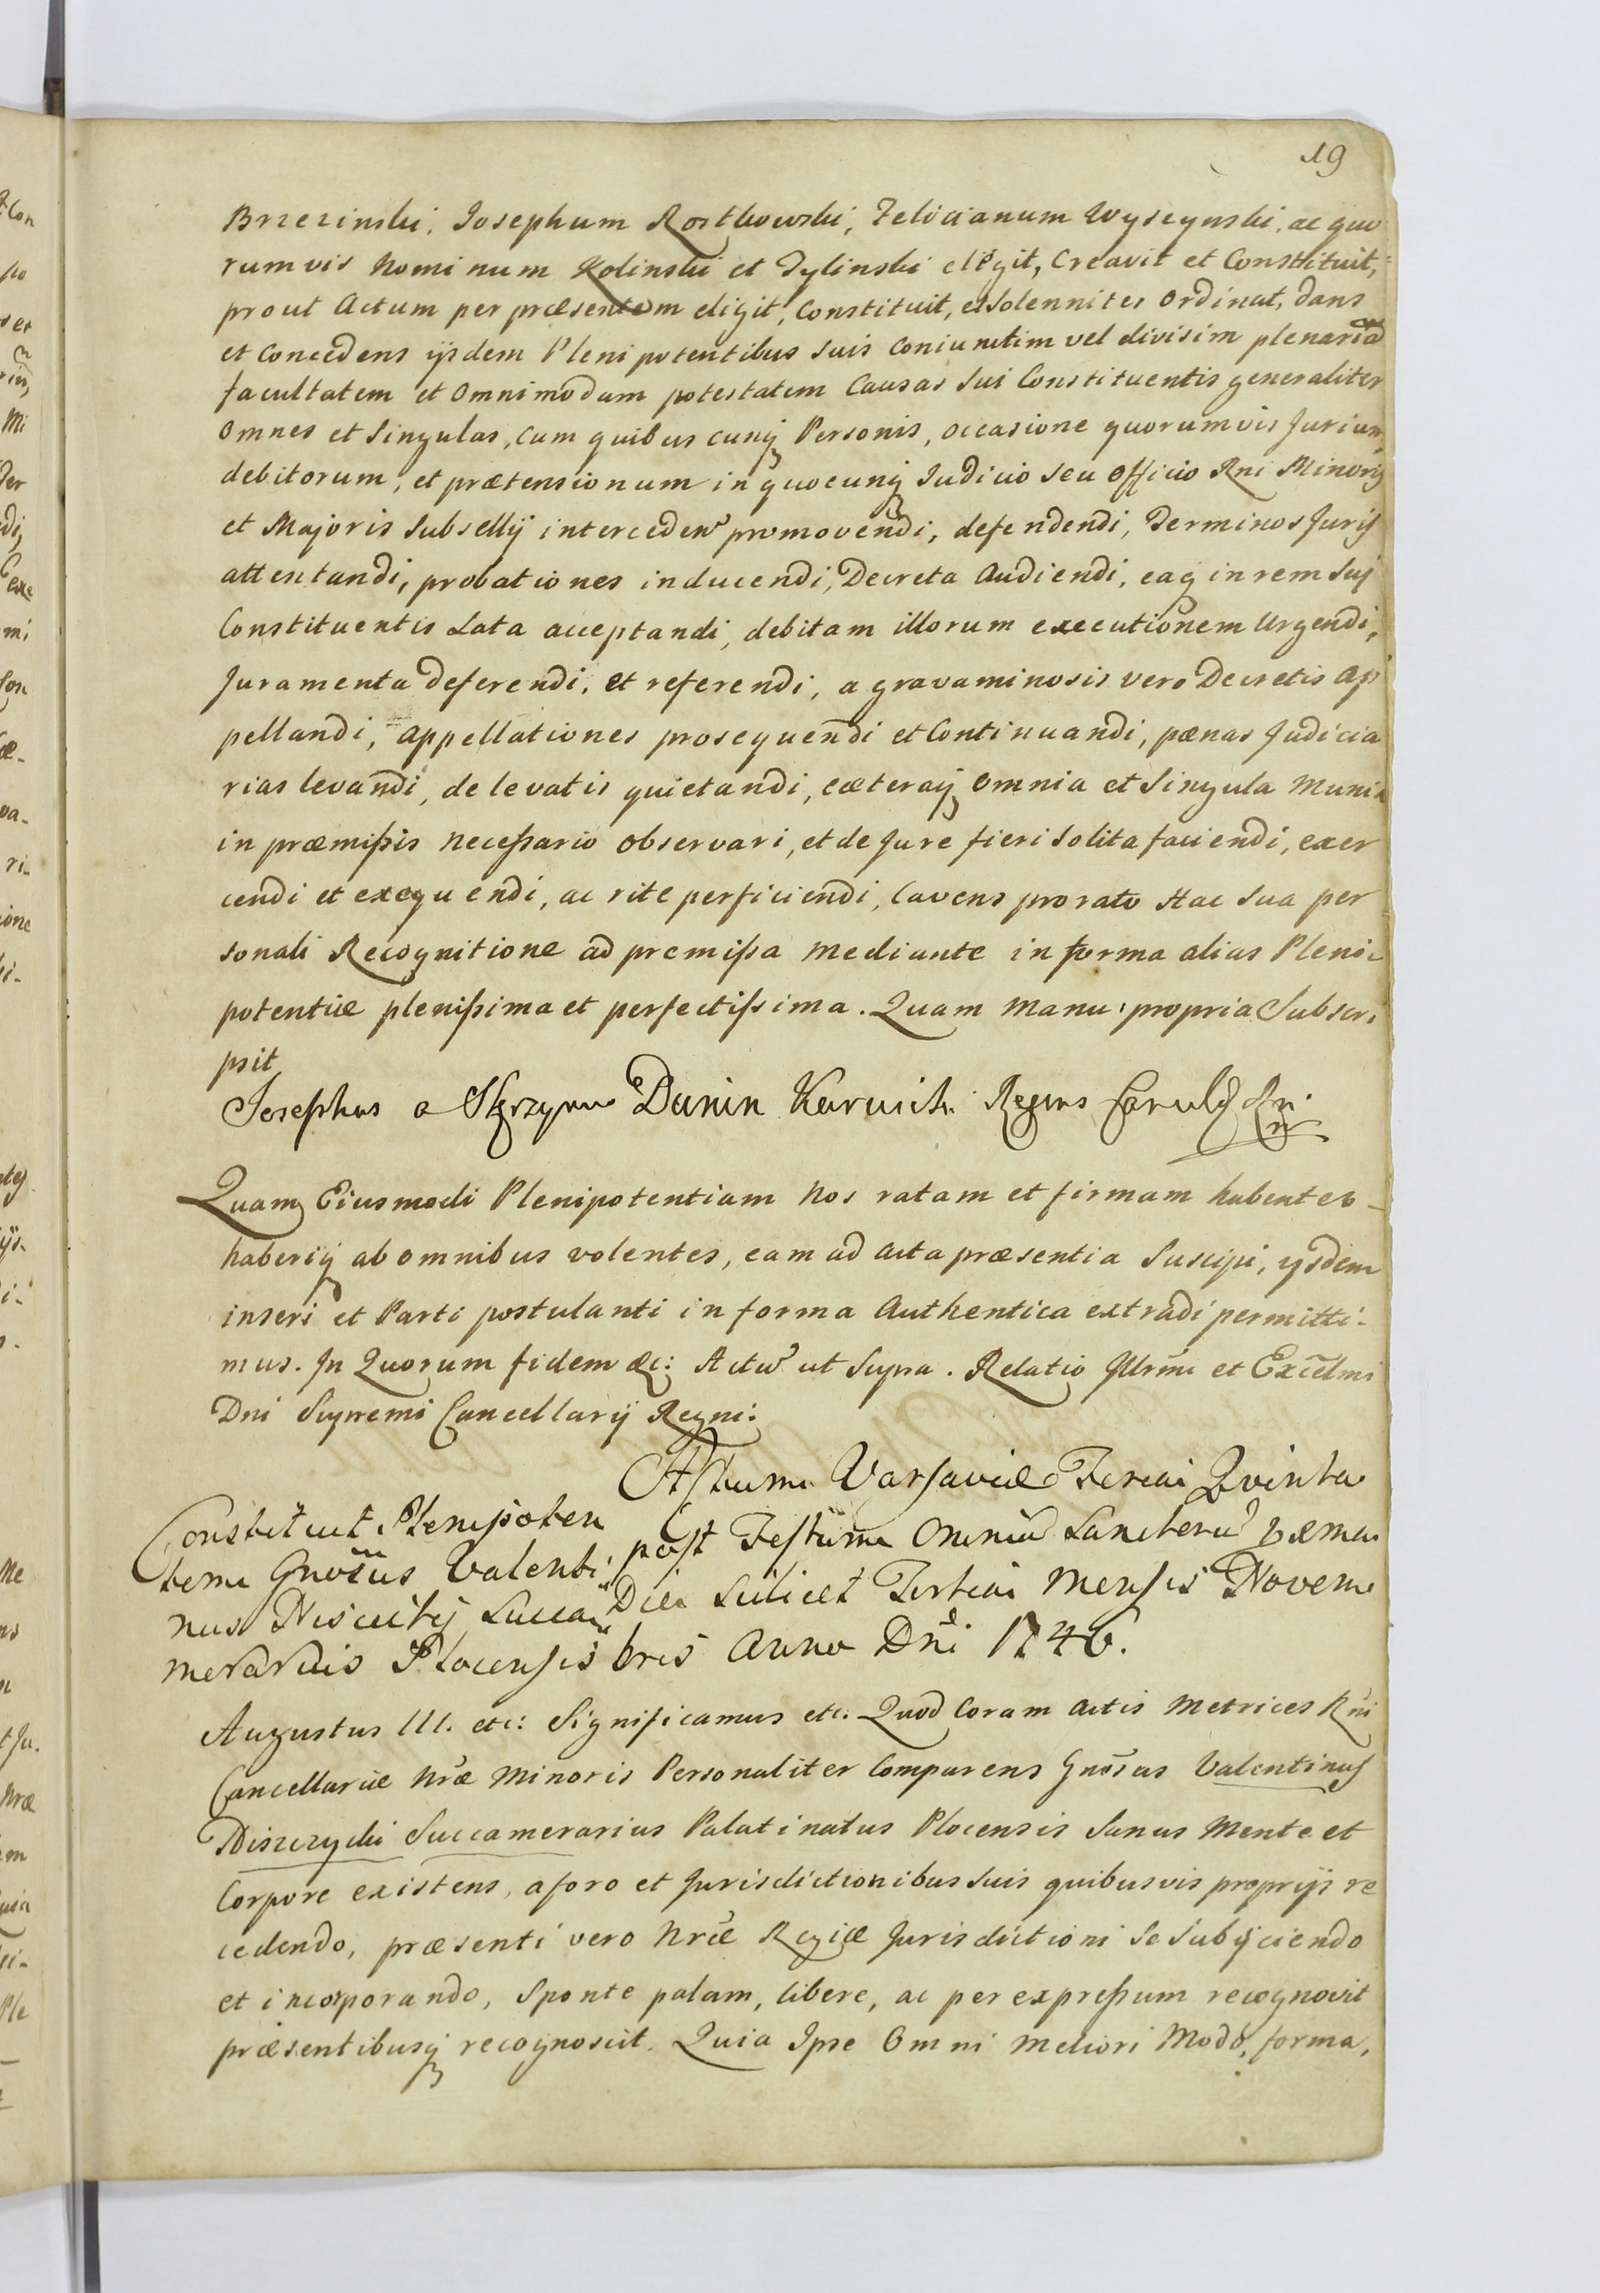 19
Brzezinski, Josephum Rostkowski, Felicianum Wyszynski, ac quo
rumvis Nominum Kolinski et Tylinski elegit, Creavit et Constituit,
prout Actum per præsentem eligit, Constituit, et solenniter Ordinat, dans
et Concedens ijsdem Plenipotentibus suis Coniunctim vel divisim plenariam
facultatem et Omnimodam potestatem Causas sui Constituentis generaliter
Omnes et Singulas, cum quibuscunq Personis, occasione quorumvis Jurium
debitorum, et prætensionum in quocunq Judicio seu Officio Rni Minoris
et Majoris Subsellij interceden promovendi, defendendi, Terminos Juris
attentandi, probationes inducendi, Decreta Audiendi, eaq in rem Suj
Constituentis Lata acceptandi, debitam illorum executionem Urgendi,
Juramenta deferendi, et referendi, a gravaminosis vero Decretis Ap
pellandi, appellationes prosequendi et Continuandi, pænas Judicia
rias levandi, de levatis quietandi, cæteraq omnia et Singula Munia
in præmißis Neceßario Observari, et de Jure fieri Solita faciendi, exer
cendi et exequendi, ac rite perficiendi, Cavens pro rato Hac Sua per
sonali Recognitione ad premißa Mediante in forma alias Pleni
potentiæ plenißima et perfectißima. Quam Manu propria Subscri
psit
Josephus a Skrzynno Dunin Karwicki Regens
Quam Eiusmodi Plenipotentiam Nos ratam et firmam habentes
haberiq ab omnibus volentes, eam ad Acta præsentia Suscipi, ijsdem
inseri et Parti postulanti in forma Authentica extradi permitti-
mus. In Quorum fidem &c: Actu ut Supra. Relatio Illrmi et Excelmi
Dni Supremi Cancellarij Regni:
Actum Varsaviæ Feria Qvinta
post Festum Omniu Sanctoru
Die Scilicet Tertia Mensis Novem
bris Anno Dni 1746.
Constituit Plenipoten
tem Gnosus Valenti
nus Discicky Succa
merarius Plocensis
Augustus III. etc: Significamus etc. Quod Coram Actis Metrices Rni
Cancellariæ Nræ Minoris Personaliter Comparens Gnosus Valentinus
Discrzycki Succamerarius Palatinatus Plocensis Sanus Mente et
Corpore existens, a foro et Jurisdictionibus suis quibusvis proprijs re
cedendo, præsenti vero Nræ Regiæ Jurisdictioni Se Subijciendo
et incorporando, Sponte palam, libere, ac per expreßum recognovit
præsentibusq recognoscit. Quia Ipse Omni Meliori Modo, forma,